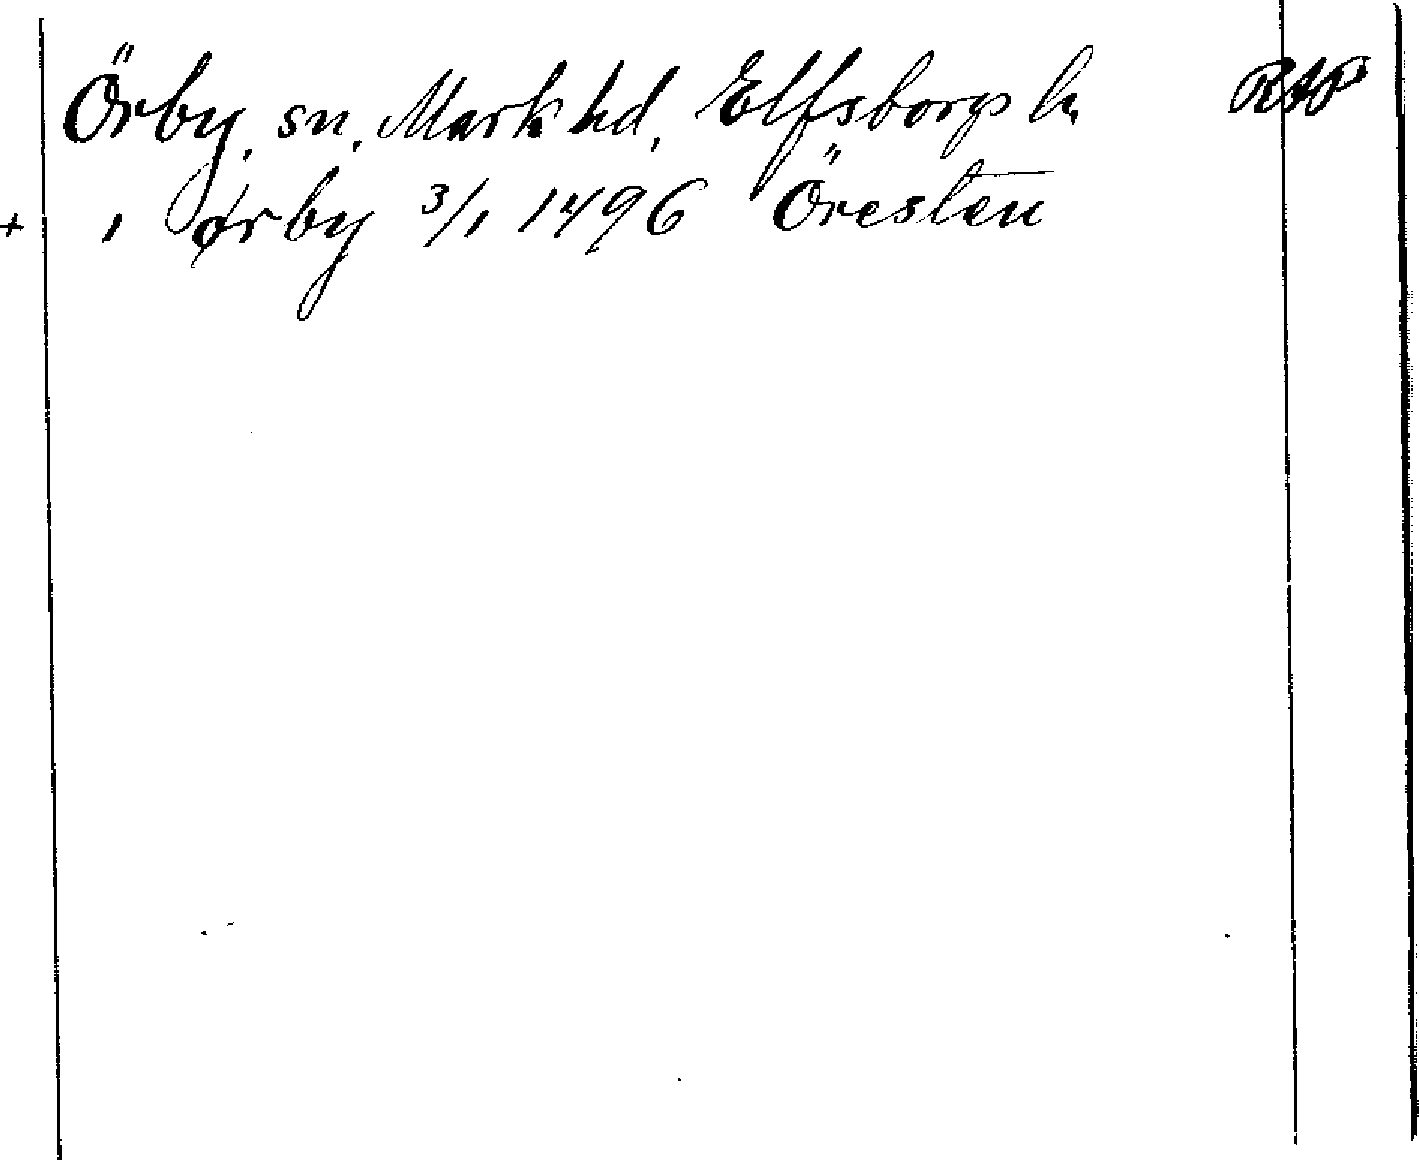 Örby, sn, Mark hd, Elfsborgs l. RAP
+ , ørby 3/1 1496 Öresten